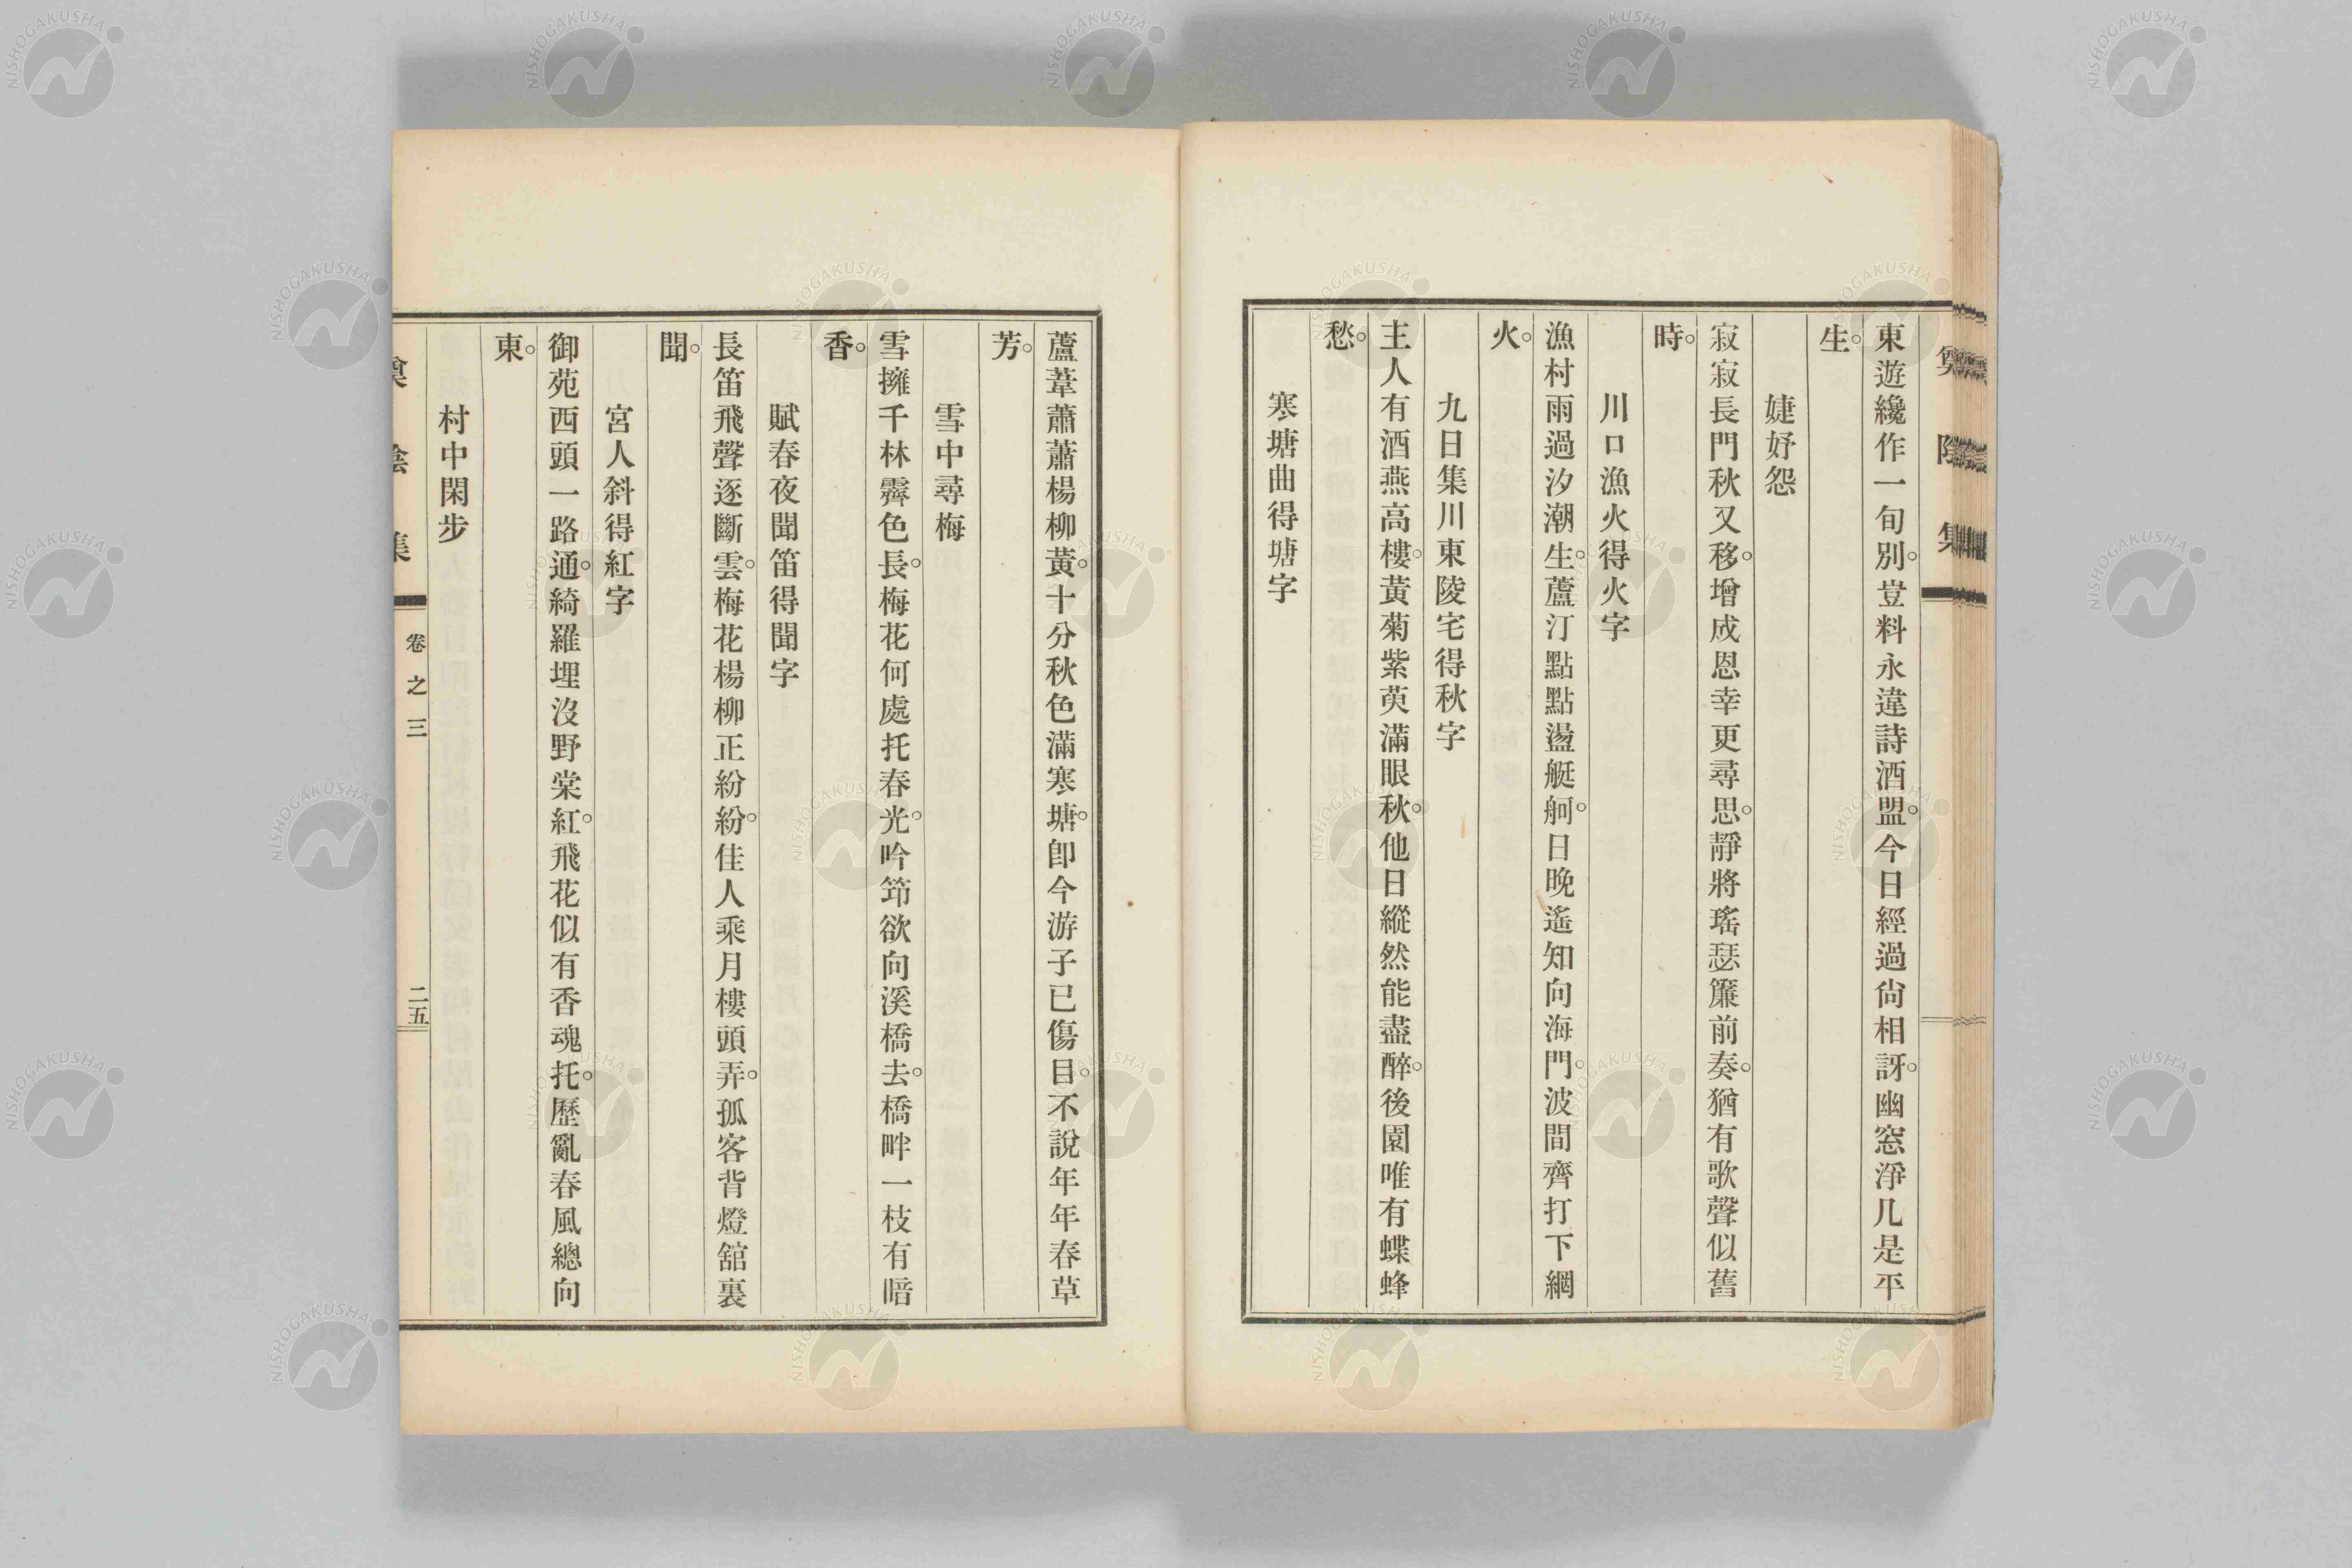 東遊纔作一旬別。豈料永違詩酒盟。今日經過尙相訝。幽窓淨几是平
生。
婕妤怨
寂寂長門秋又移。增成恩幸更尋思。靜將瑤瑟簾前奏。猶有歌聲似舊
時。
川口漁火得火字
漁村雨過汐潮生。蘆汀點點盪艇舸。日晚遙知向海門。波間齊打下網
火。
九日集川東陵宅得秋字
主人有酒燕高樓。黃菊紫萸滿眼秋。他日縱然能盡醉。後園唯有蝶蜂
愁。
寒塘曲得塘字
蘆葦蕭蕭楊柳黃。十分秋色滿寒塘。卽今游子已傷目。不說年年春草
芳。
雪中尋梅
雪擁千林霽色長。梅花何處托春光。吟筇欲向溪橋去。橋畔一枝有暗
香。
賦春夜聞笛得聞字
長笛飛聲逐斷雲。梅花楊柳正紛紛。佳人乘月樓頭弄。孤客背燈舘裏
聞。
宮人斜得紅字
御苑西頭一路通。綺羅埋沒野棠紅。飛花似有香魂托。歷亂春風總向
東。
村中閑步
卷之三
二五
NISHOGAKUSHA